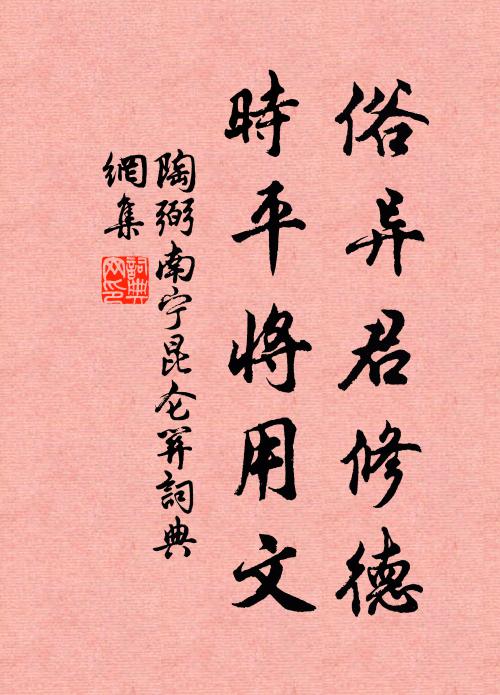 俗异君修德
時平將用文
陶弼南宁昆仑関詞典
網集
詞典
网印